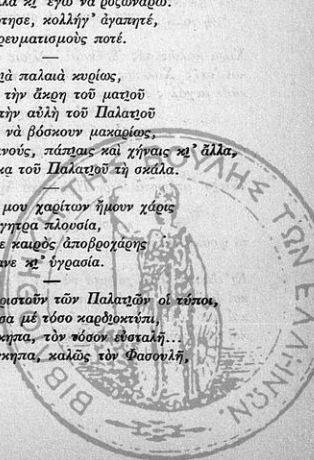 κι᾿ ἐγὼ νὰ ροζονάρω.
κολλήγ᾿ ἀγαπητέ,
ρευματισμοὺς ποτέ.
παλαιὰ κυρίως,
τὴν ἄκρη τοῦ ματιοῦ
τὴν αὐλὴ τοῦ Παλατιοῦ
νὰ βόσκουν μακαρίως,
πάπιαις καὶ χήναις κι᾿ ἄλλα,
τοῦ Παλατιοῦ τὴ σκάλα.
μου χαρίτων ἤμουν χάρις
πλουσία,
καιρὸς ἀποβροχάρης
κι᾿ ὑγρασία.
τῶν Παλατιῶν οἱ τύποι,
μὲ τόσο καρδιοκτύπι,
τὸν τόσον εὐσταλῆ...
καλῶς τὸν Φασουλῆ,
ΒΙΒΛΙΟΘΗΚΗ ΤΗΣ ΒΟΥΛΗΣ ΤΩΝ ΕΛΛΗΝΩΝ